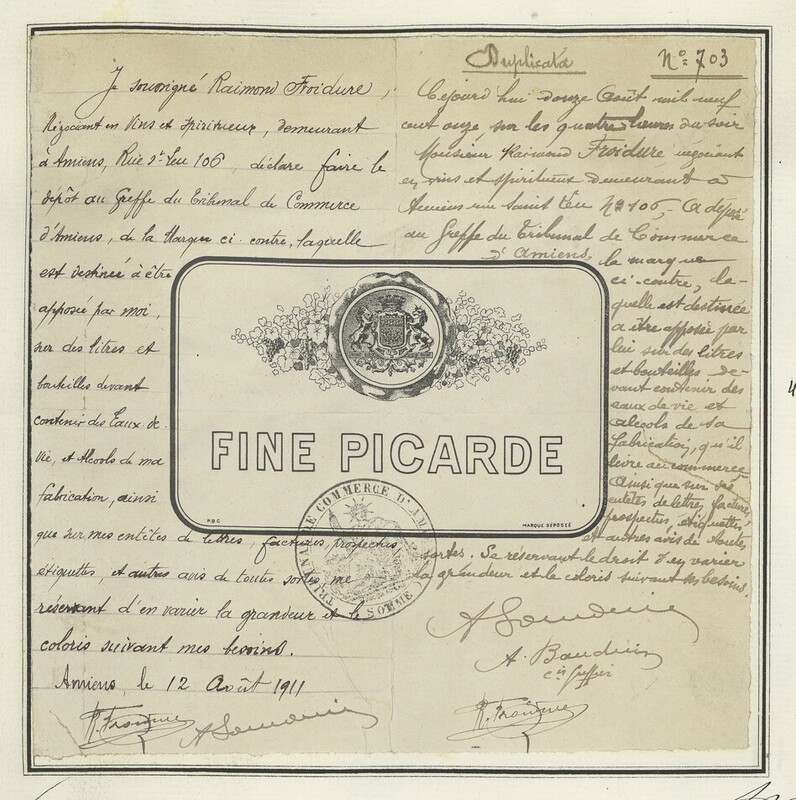 Je soussigné Raimond Froidure,
Négociant en Vins et Spiritueux, demeurant
à Amiens, Rue St Leu 106, déclare faire le
dépôt au Greffe du Tribunal de Commerce
d'Amiens, de la Marque ci-contre, laquelle
est destinée à être
apposée par moi,
sur des litres et
bouteilles devant
contenir des Eaux-de-
Vie, et Alcools de ma
fabrication, ainsi
que sur mes entêtes de lettres, factures, prospectus
étiquettes, et autres avis de toutes sortes, me
réservant d'en varier la grandeur et le
coloris suivant mes besoins.
Amiens, le 12 Août 1911
R. Froidure
Duplicata
No 703
Cejourd'hui douze Août mil neuf
cent onze, sur les quatre heures du soir
Monsieur Raimond Froidure, négociant
en vins et spiritueux demeurant à
Amiens rue Saint Leu No 106, a déposé
au Greffe du Tribunal de Commerce
d'Amiens, la marque
ci-contre, la-
quelle est destinée
à être apposée par
lui sur des litres
et bouteilles de-
vant contenir des
eaux de vie et
alcools de sa
fabrication, qu'il
livre au commerce
Ainsi que sur ses
entêtes de lettres, factures,
prospectus, étiquettes,
et autres avis de toutes
sortes. Se réservant le droit d'en varier
la grandeur et le coloris suivant ses besoins.
A. Bauduin
cis Greffier
R. Froidure
FINE PICARDE
MARQUE DÉPOSÉE
TRIBUNAL DE COMMERCE D'AMIENS
SOMME